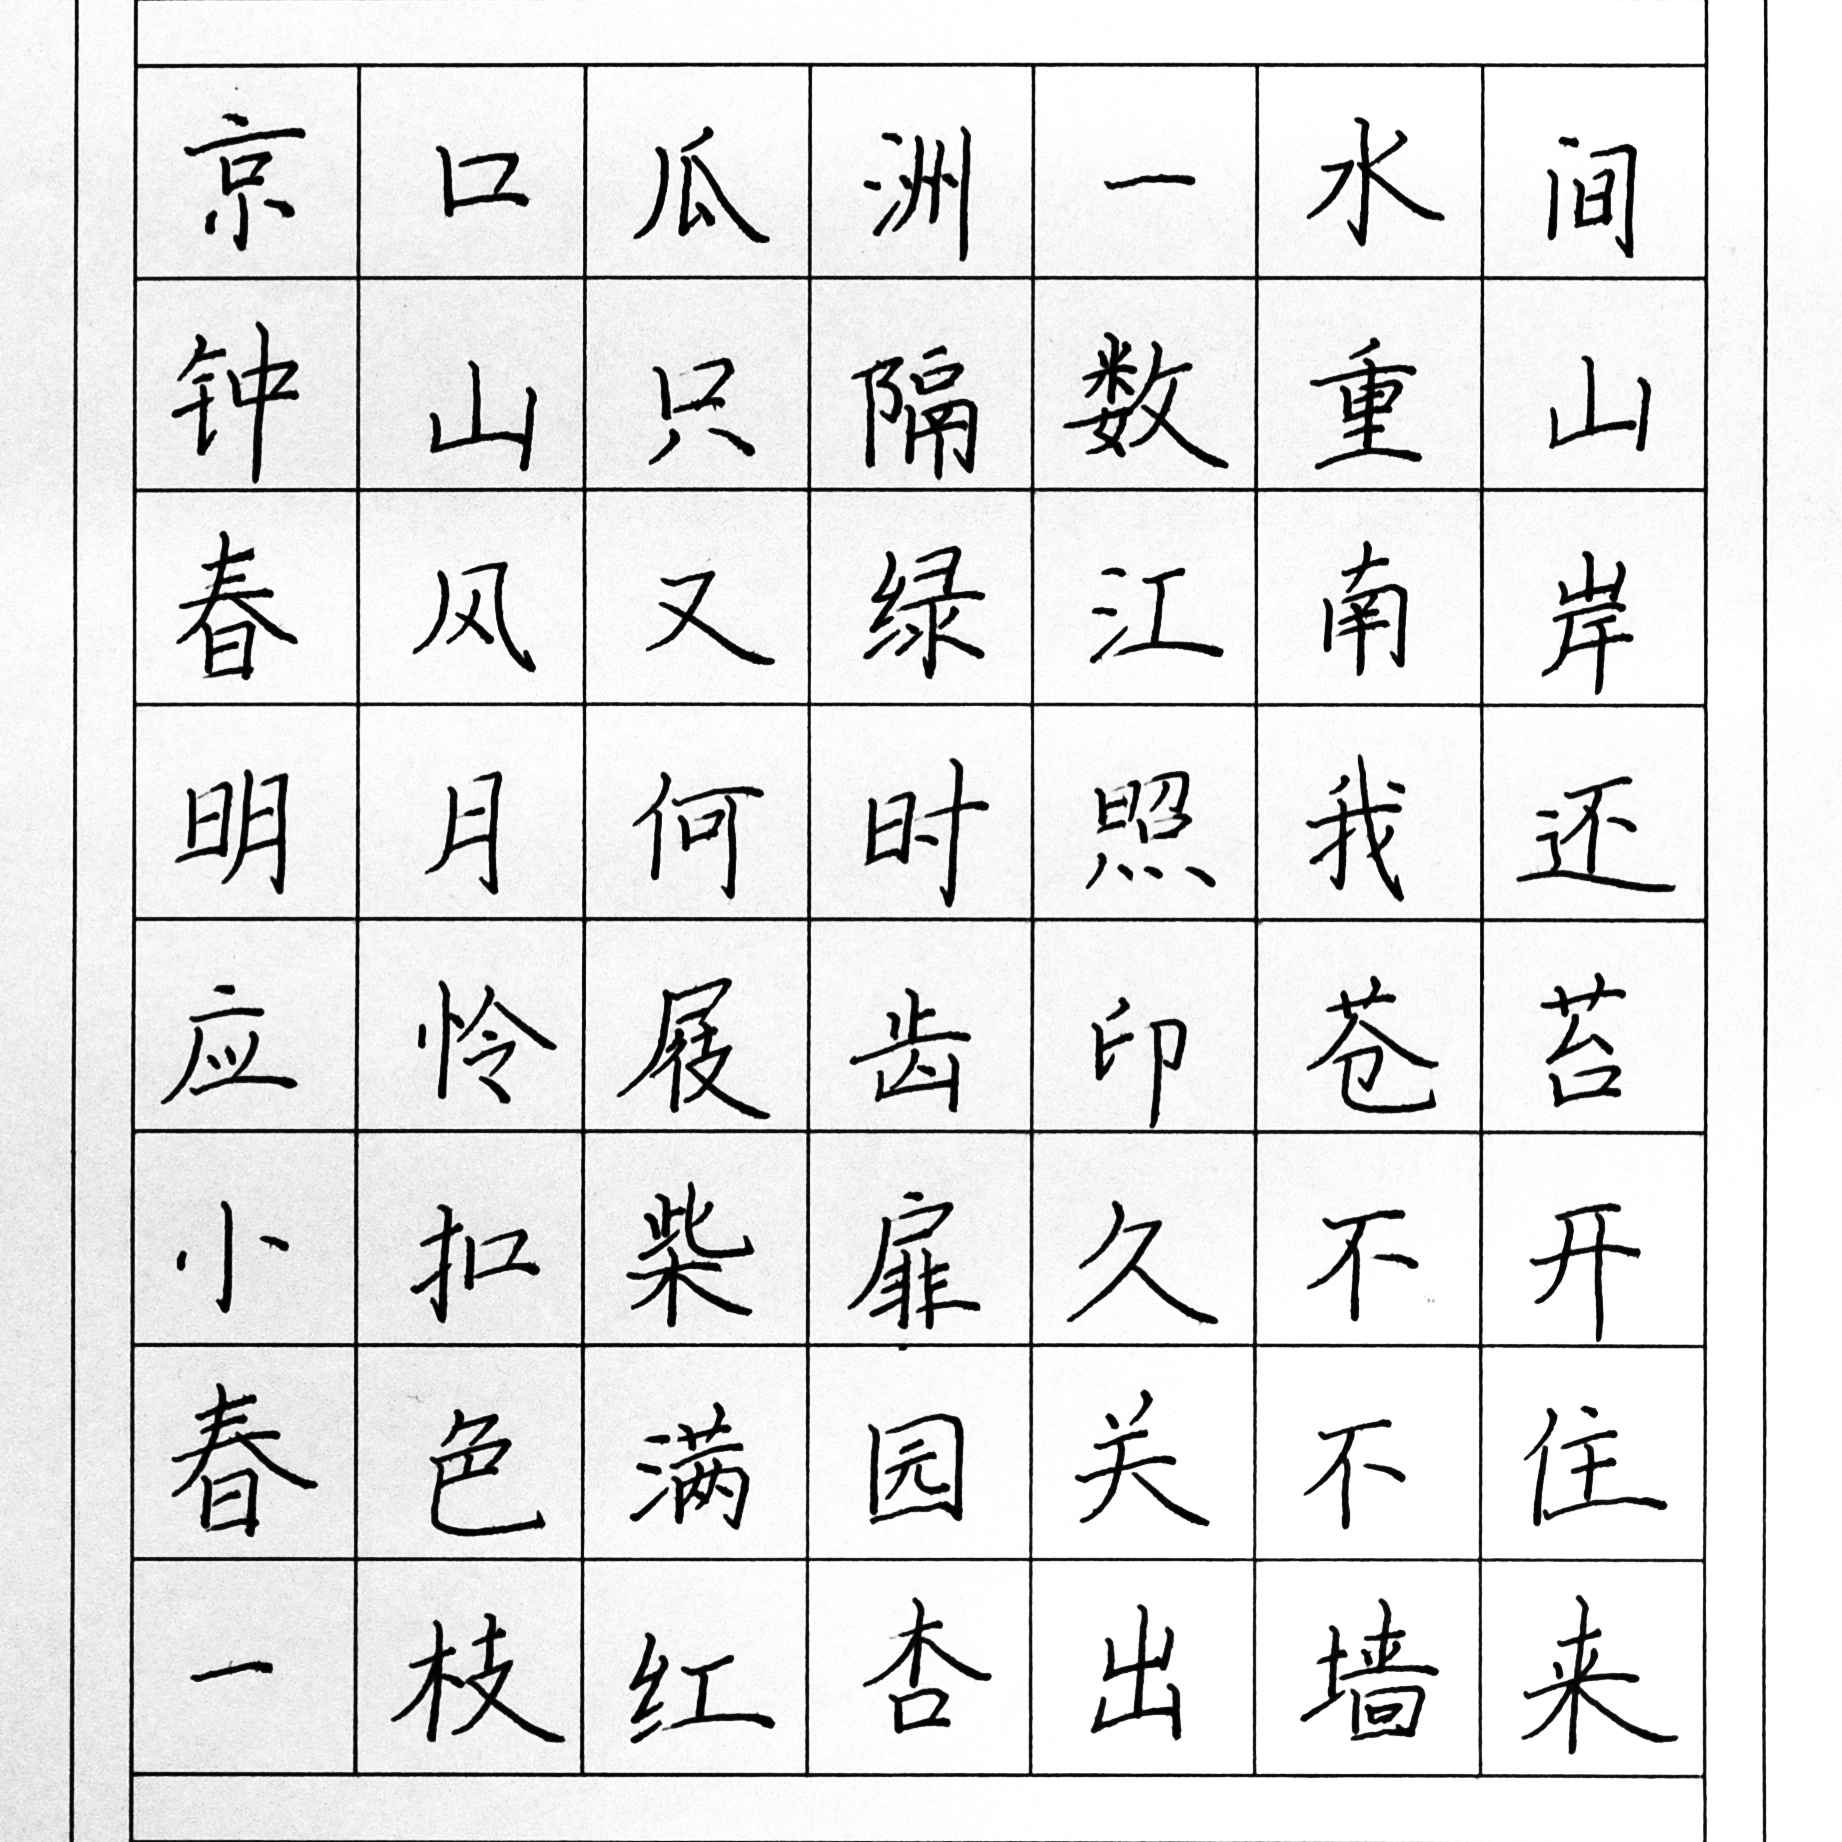 京口瓜洲一水间
钟山只隔数重山
春风又绿江南岸
明月何时照我还
应怜屐齿印苍苔
小扣柴扉久不开
春色满园关不住
一枝红杏出墙来